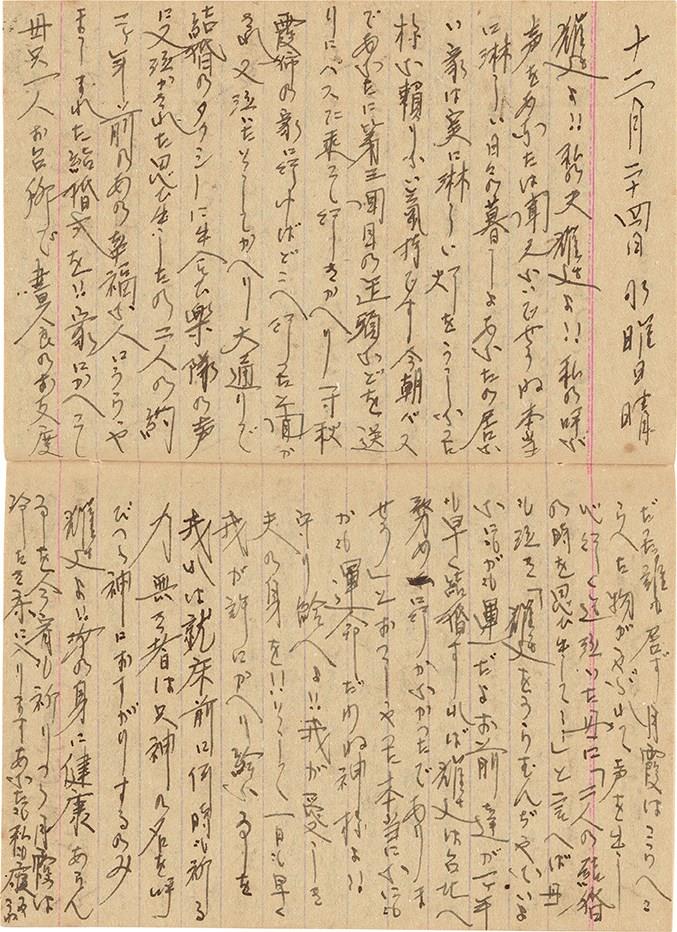 十二月二十四日 水曜日 晴
雄よ!! 我夫雄よ!! 私の呼ぶ
声をあなたは聞えないでせうね 本当
に淋しい日を暮しよ あなたの居な
い家は実に淋しい 灯をうしなった
様な頼りない気持です 今朝バス
であなたに着 頭などを送
りにバスに乗って行きかへり一寸秋
霞姉の家に行けばどこへ行たと聞か
れ又泣いた そしてかへり大通りで
結婚のタクシーに出会ひ 楽隊の声
に又泣かされた 思ひ出しましたの 二人の
二年前のあの幸福な人にうらや
ましがれた結婚式を!! 家にかへって
母只一人お台所で昼食のお支度
だた 誰も居ず 月霞はこらへこ
らへた物がやぶれて声を出し
泣いた 母に「二人の結婚
の時を思ひ出して…」と言へば母
も泣き「雄をうらむんぢやないよ
なにがも運だよ お前達が一年
も早く結婚すれば雄は台北へ
務めに行かなかったでありま
せう」とおっしゃった 本当になにも
かも運命だわね 神様よ!!
守り給へよ!! 我が愛しき
夫の身を!! そして一日も早く
我が許にかへり給ふるを
我れは就床前に何時も祈る
力無き者は只神の名を呼
びつゝ神におすがりするのみ
雄よ!! 汝の身に健康あらん
事を今宵も祈りつゝ月霞は
冷たき床に入ります あなたも私の